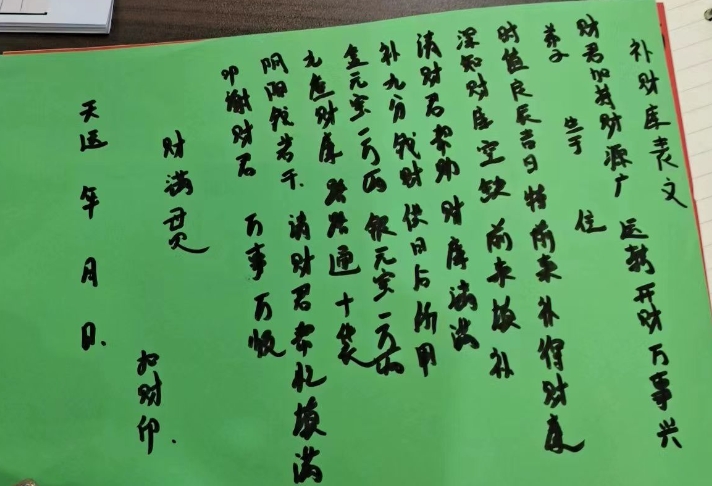 补财库表文
财君加持财源广 运转开财万事兴
养子 生于 位
时值良辰吉日 特前来补得财库
深知财库空缺 前来填补
请财君帮助 财库满满
补九分钱财 供日后所用
金元宝一万两 银元宝一万两
九座财库 路路通十袋
阴阳钱若干. 请财君帮忙填满
叩谢财君 万事万顺
财满贯
扣财印.
天运 年 月 日.